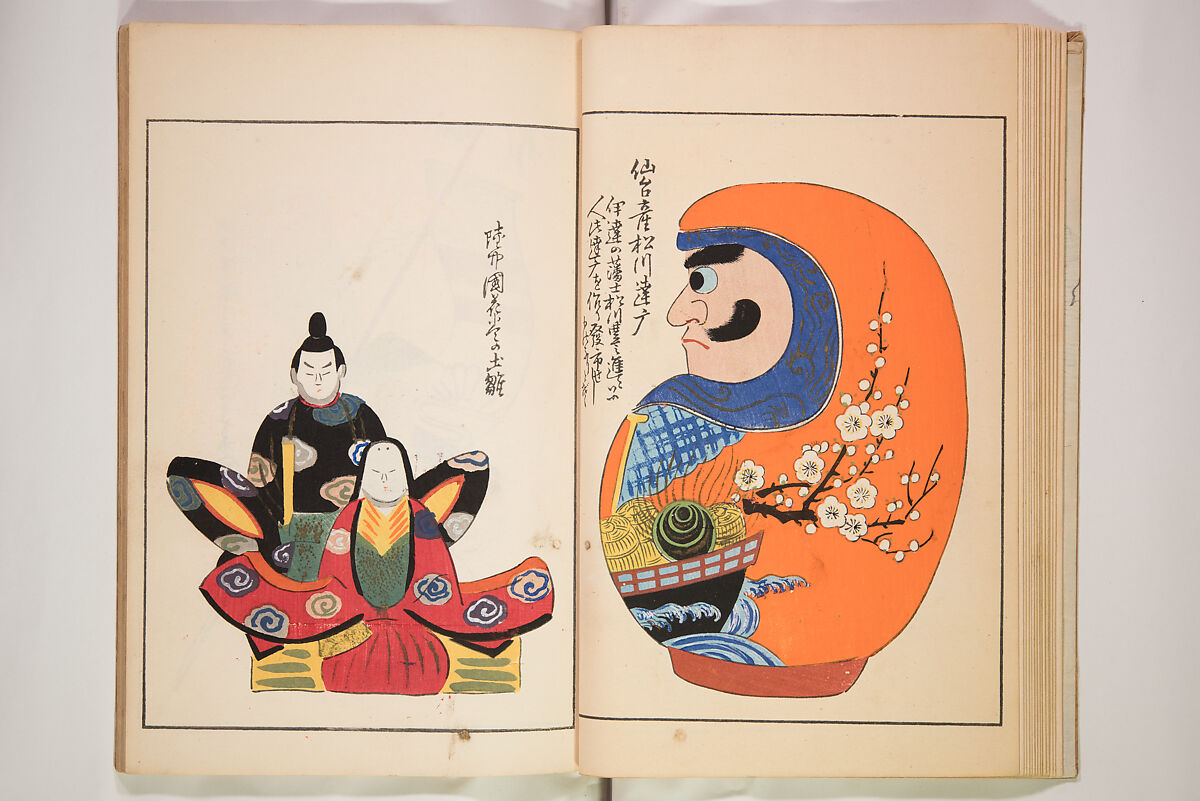 仙台産松川達广
伊達の藩士松川豊之進といふ
人此達广を作り發市せし
陸中國花巻の土雛